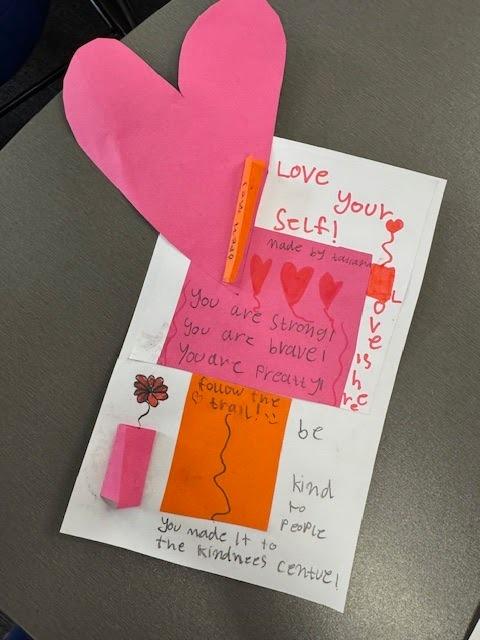 Love
Your
Self!
open me!
made by tasiana
You are strong!
You are brave!
You are preatty!
Love is here
follow the
trail!
be
kind
to
people
You made it to
the kindnees centure!